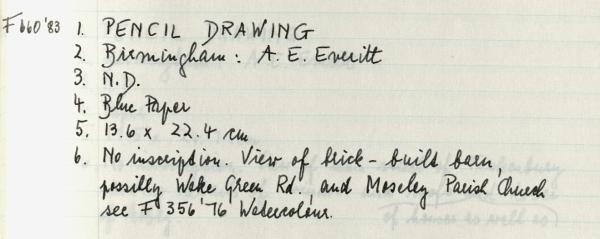 F660'83 1. PENCIL DRAWING
2. Birmingham: A. E. Everitt
3. N.D.
4. Blue Paper
5. 13.6 x 22.4 cm
6. No inscription. View of brick-built barn,
possibly Wake Green Rd. and Moseley Parish Church
see F 356'76 Watercolour.
of houses as well as